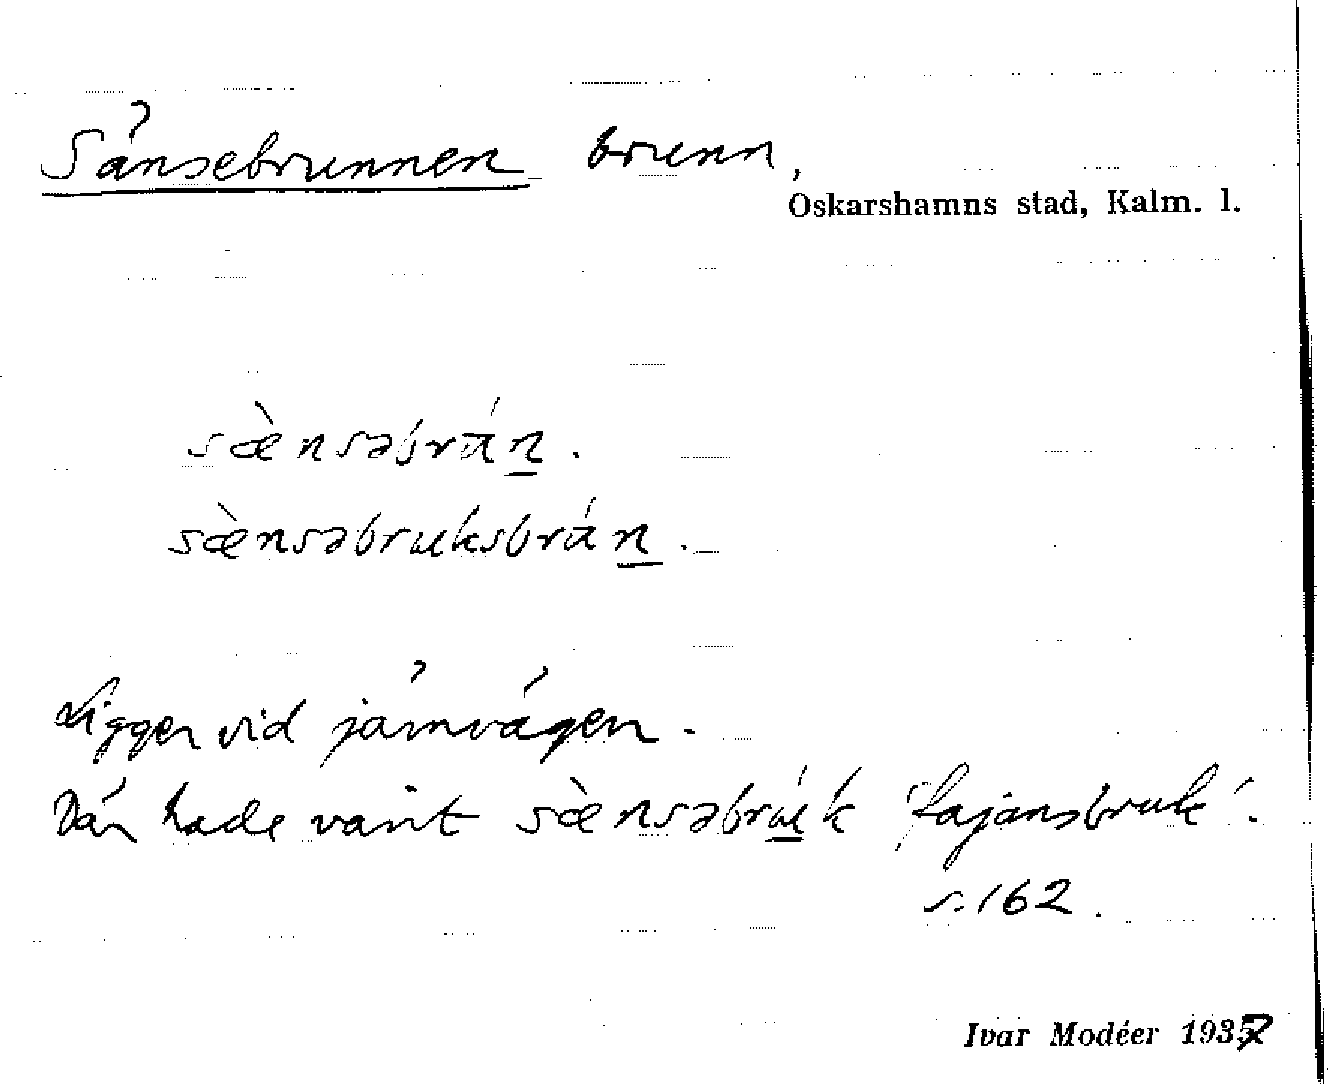 Sänsebrunnen brunn,
Oskarshamns stad, Kalm. l.
sæ̀nsəbrán.
sæ̀nsəbruksbrán.
Ligger vid järnvägen.
Där hade varit sæ̀nsəbrúk 'fajansbruk'.
s. 162.
Ivar Modéer 1937